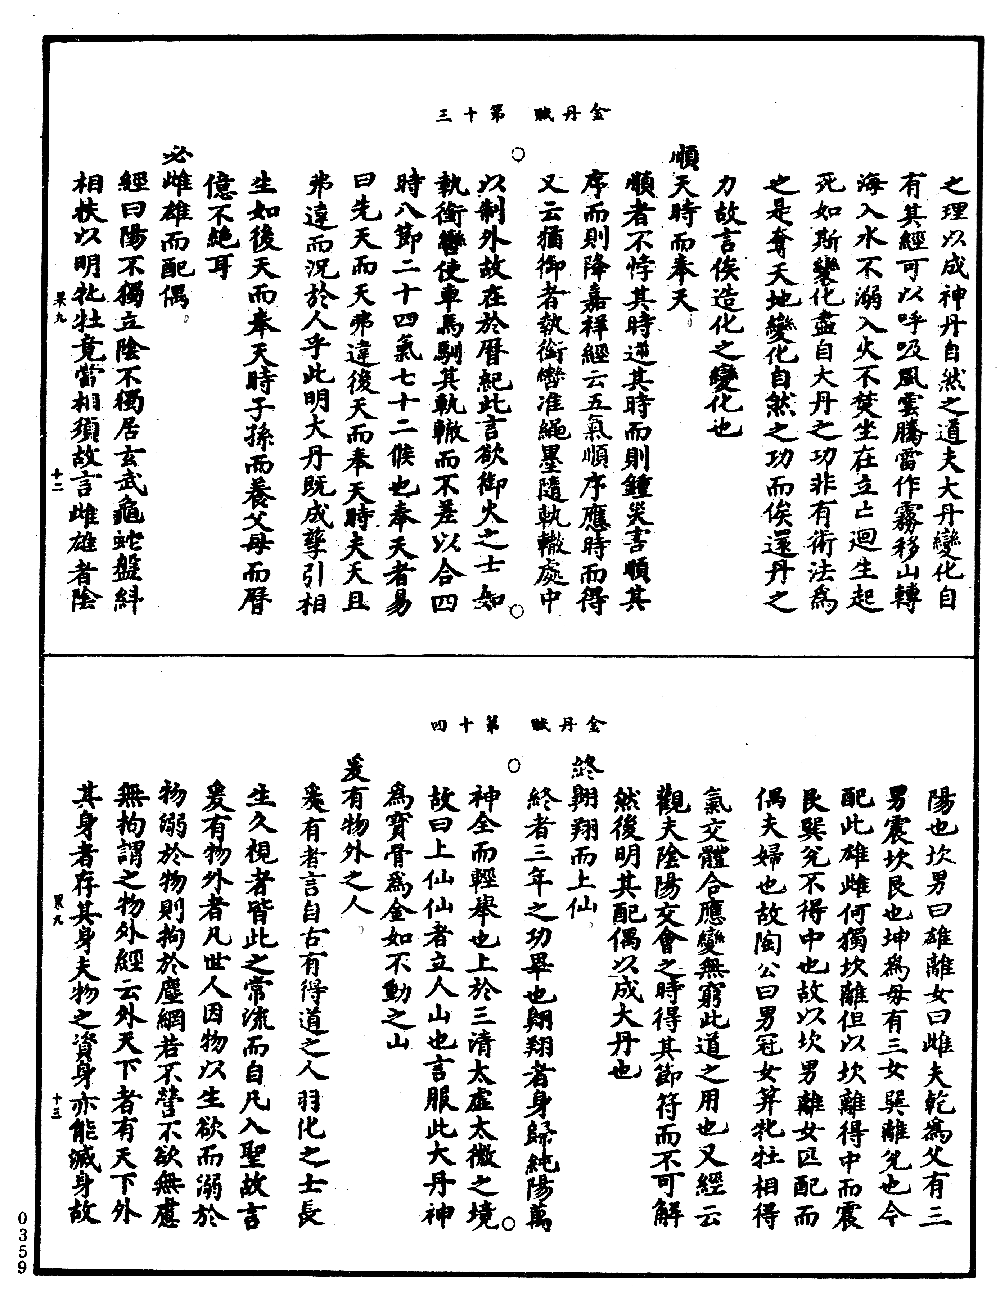 金丹賦　第十三
之理以成神丹自然之道夫大丹變化自
有其經可以呼吸風雲騰雷作霧移山轉
海入水不溺入火不焚坐在立亡迴生起
死如斯變化盡自大丹之功非有術法為
之是奪天地變化自然之功而俟還丹之
力故言俟造化之變化也
順天時而奉天。
順者不悖其時逆其時而則鍾災害順其
序而則降嘉祥經云五氣順序應時而得
又云猶御者執銜轡准繩墨隨軌轍處中
以制外故在於曆紀此言欲御火之士如
執銜轡使車馬馴其軌轍而不差以合四
時八節二十四氣七十二候也奉天者易
曰先天而天弗違後天而奉天時夫天且
弗違而況於人乎此明大丹既成孳引相
生如後天而奉天時子孫而養父母而曆
億不絶耳
必雌雄而配偶。
經曰陽不獨立陰不獨居玄武龜蛇盤糾
相扶以明牝牡竟當相須故言雌雄者陰
果九
十二
金丹賦　第十四
陽也坎男曰雄離女曰雌夫乾為父有三
男震坎艮也坤為母有三女巽離兌也今
配此雄雌何獨坎離但以坎離得中而震
艮巽兌不得中也故以坎男離女匹配而
偶夫婦也故陶公曰男冠女笄牝牡相得
氣交體合應變無窮此道之用也又經云
觀夫陰陽交會之時得其節符而不可解
然後明其配偶以成大丹也
終翱翔而上仙。
終者三年之功畢也翱翔者身歸純陽萬
神全而輕舉也上於三清太虛太微之境
故曰上仙仙者立人山也言服此大丹神
為寶骨為金如不動之山
爰有物外之人。
爰有者言自古有得道之人羽化之士長
生久視者皆此之常流而自凡入聖故言
爰有物外者凡世人因物以生欲而溺於
物溺於物則拘於塵網若不營不欲無慮
無拘謂之物外經云外天下者有天下外
其身者存其身夫物之資身亦能滅身故
果九
十三
0359